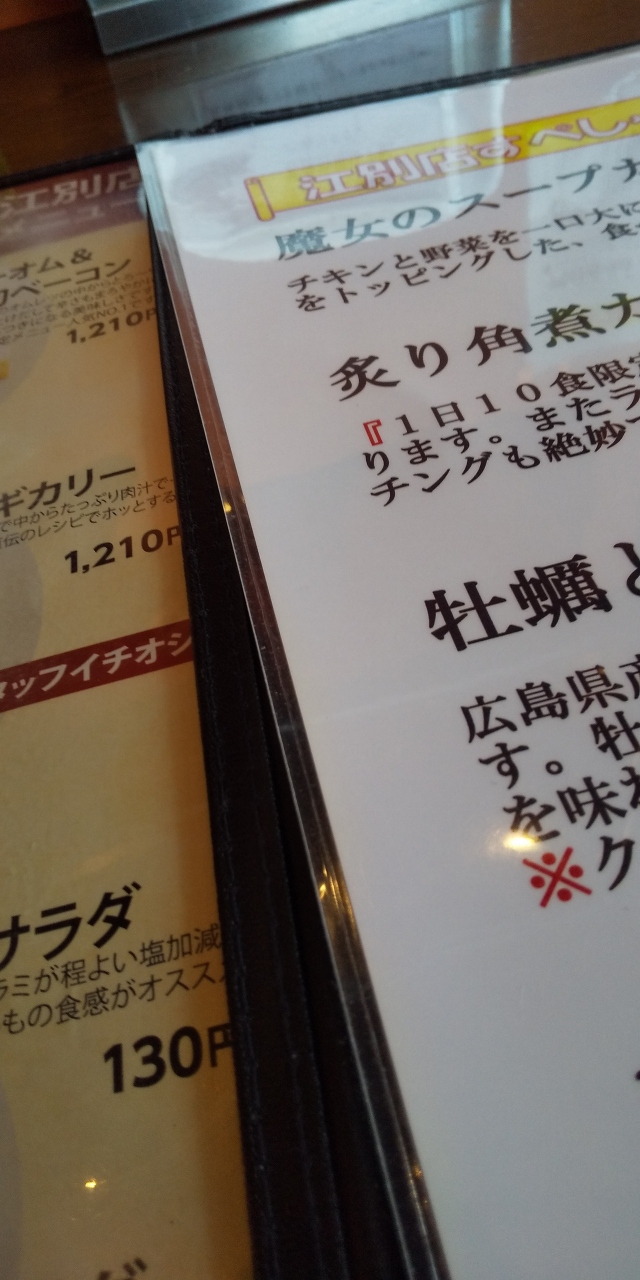 江別店
メニュー
オム&
ベーコン
1,210
ギカリー
で中からたっぷり肉汁で
伝のレシピでホッとする
1,210円
タッフイチオシ
サラダ
ラミが程よい塩加減
もの食感がオススメ
130円
江別店すぺし
魔女のスープカ
チキンと野菜を一口大に
をトッピングした、食
炙り角煮カ
『1日10食限定
ります。またラ
チングも絶妙
牡蠣と
広島県産
す。牡
を味わ
※ク